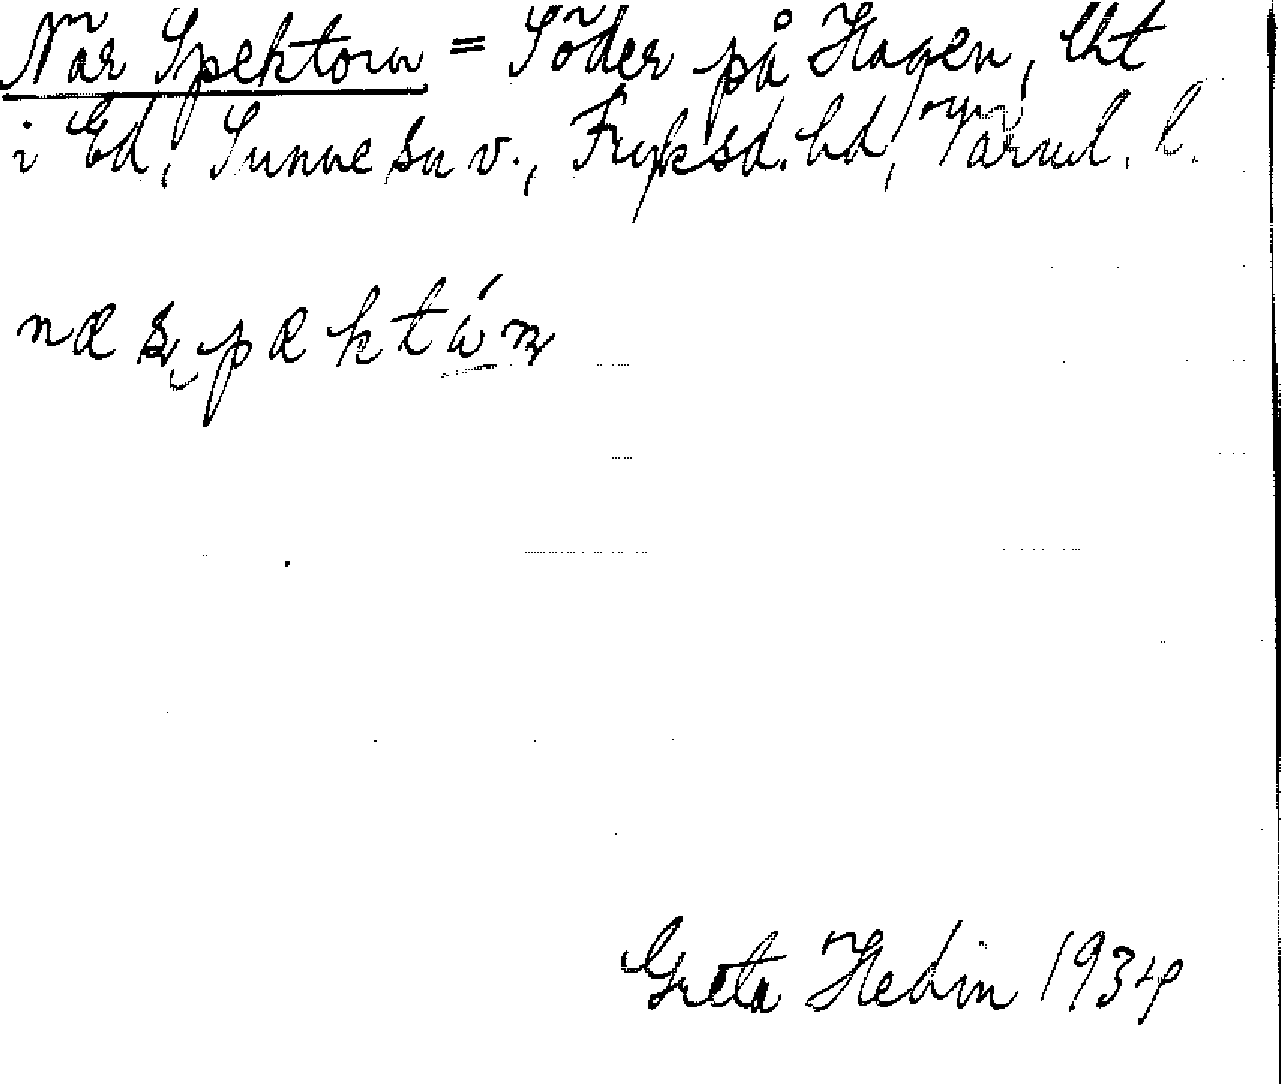 När Spektorn = Söder på Hagen, lht
i Ed, Sunne sn v., Fryksd. hd, Värml. l.
Greta Hedin 1934